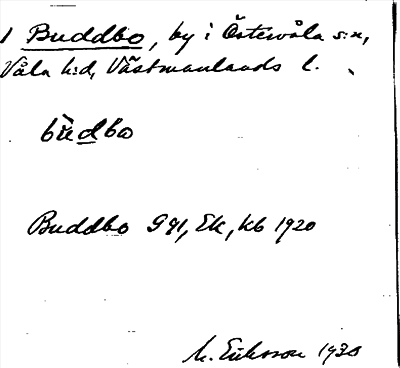 1 Buddbo, by i Östervåla s:n,
Våla h:d, Västmanlands l.
bùdbo
Buddbo G 91, Ek, kb 1920
M. Eriksson 1930